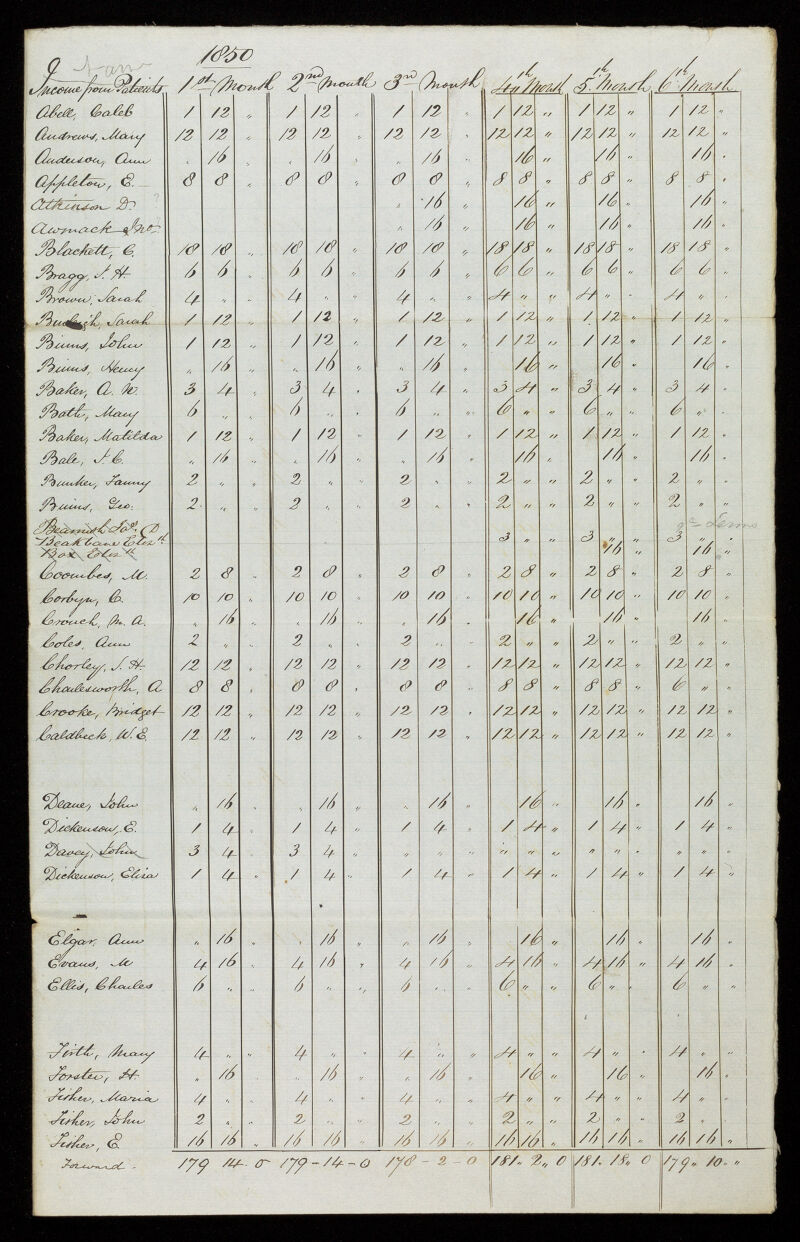 1850
Income from Patients 1st Month 2nd Month 3rd Month 4th Month 5th Month 6th Month
Abell, Caleb 1 12 „ 1 12 „ 1 12 „ 1 12 „ 1 12 „ 1 12 „
Andrews, Mary 12 12 „ 12 12 „ 12 12 „ 12 12 „ 12 12 „ 12 12 „
Anderson, Ann „ 16 „ „ 16 „ „ 16 „ 16 „ 16 „ 16 „
Appleton, E. 8 8 „ 8 8 „ 8 8 „ 8 8 „ 8 8 „ 8 8 „
Atkinson D. ? „ 16 „ 16 „ 16 „ 16 „
Awmack Jno. „ 16 „ 16 „ 16 „ 16 „
Blackett, C. 18 18 „ 18 18 „ 18 18 „ 18 18 „ 18 18 „ 18 18 „
Bragg, J. H. 6 6 „ 6 6 „ 6 6 „ 6 6 „ 6 6 „ 6 6 „
Brown, Sarah 4 „ „ 4 „ „ 4 „ „ 4 „ „ 4 „ „ 4 „ „
Sarah 1 12 „ 1 12 „ 1 12 „ 1 12 „ 1 12 „ 1 12 „
Binns, John 1 12 „ 1 12 „ 1 12 „ 1 12 „ 1 12 „ 1 12 „
Binns, Henry „ 16 „ „ 16 „ „ 16 „ 16 „ 16 „ 16 „
Baker, A. W. 3 4 „ 3 4 „ 3 4 „ 3 4 „ 3 4 „ 3 4 „
Bath, Mary 6 „ „ 6 „ „ 6 „ „ 6 „ „ 6 „ „ 6 „ „
Baker, Matilda 1 12 „ 1 12 „ 1 12 „ 1 12 „ 1 12 „ 1 12 „
Bale, J. C. „ 16 „ „ 16 „ „ 16 „ 16 „ 16 „ 16 „
Bunker, Fanny 2 „ „ 2 „ „ 2 „ „ 2 „ „ 2 „ „ 2 „ „
Binns, Geo. 2 „ „ 2 „ „ 2 „ „ 2 „ „ 2 „ „ 2 „ „
Beamish Jos. D
Beakbane Elizth 3 „ „ 3 „ „ 3 „ „
Box Elizth 16 „ 16 „
Coombes, M. 2 8 „ 2 8 „ 2 8 „ 2 8 „ 2 8 „ 2 8 „
Corbyn, C. 10 10 „ 10 10 „ 10 10 „ 10 10 „ 10 10 „ 10 10 „
Crouch, M. A. „ 16 „ „ 16 „ „ 16 „ 16 „ 16 „ 16 „
Coles, Ann 2 „ „ 2 „ „ 2 „ „ 2 „ „ 2 „ „ 2 „ „
Chorley, J. H. 12 12 „ 12 12 „ 12 12 „ 12 12 „ 12 12 „ 12 12 „
Charlesworth, A 8 8 „ 8 8 „ 8 8 „ 8 8 „ 8 8 „ 6 „ „
Crooke, Bridget 12 12 „ 12 12 „ 12 12 „ 12 12 „ 12 12 „ 12 12 „
Caldbeck, W. E. 12 12 „ 12 12 „ 12 12 „ 12 12 „ 12 12 „ 12 12 „
Deane, John „ 16 „ „ 16 „ „ 16 „ 16 „ 16 „ 16 „
Dickenson, E. 1 4 „ 1 4 „ 1 4 „ 1 4 „ 1 4 „ 1 4 „
Davey, John 3 4 „ 3 4 „ „ „ „ „ „ „ „ „ „ „ „ „
Dickenson, Eliza 1 4 „ 1 4 „ 1 4 „ 1 4 „ 1 4 „ 1 4 „
Elgar, Ann „ 16 „ „ 16 „ „ 16 „ 16 „ 16 „ 16 „
Evans, M 4 16 „ 4 16 „ 4 16 „ 4 16 „ 4 16 „ 4 16 „
Ellis, Charles 6 „ „ 6 „ „ 6 „ „ 6 „ „ 6 „ „ 6 „ „
Firth, Mary 4 „ „ 4 „ „ 4 „ „ 4 „ „ 4 „ „ 4 „ „
Forster, H. „ 16 „ 16 „ „ 16 „ 16 „ 16 „ 16 „
Fisher, Maria 4 „ „ 4 „ „ 4 „ „ 4 „ „ 4 „ „ 4 „ „
Fisher, John 2 „ „ 2 „ „ 2 „ „ 2 „ „ 2 „ „ 2 „ „
Fisher, E 16 16 „ 16 16 „ 16 16 „ 16 16 „ 16 16 „ 16 16 „
Forward. 179 14. 0 179-14-0 178-2-0 181„ 2„ 0 181„ 18„ 0 179„ 10„ „